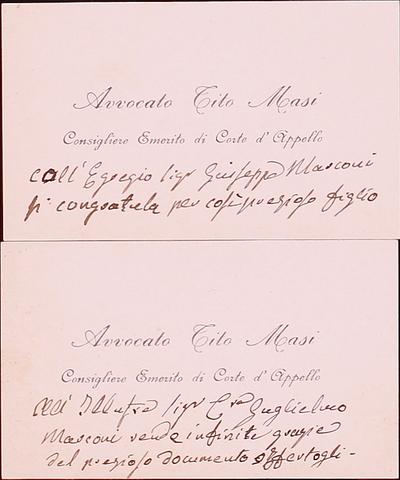 Avvocato Tito Masi
Consigliere Emerito di Corte d'Appello
coll'Egregio Sigr Giuseppe Marconi
si congratula per così prezioso figlio
Avvocato Tito Masi
Consigliere Emerito di Corte d'Appello
all'Illustre Sigr Guglielmo
Marconi rende infinite grazie
del prezioso documento offertogli -